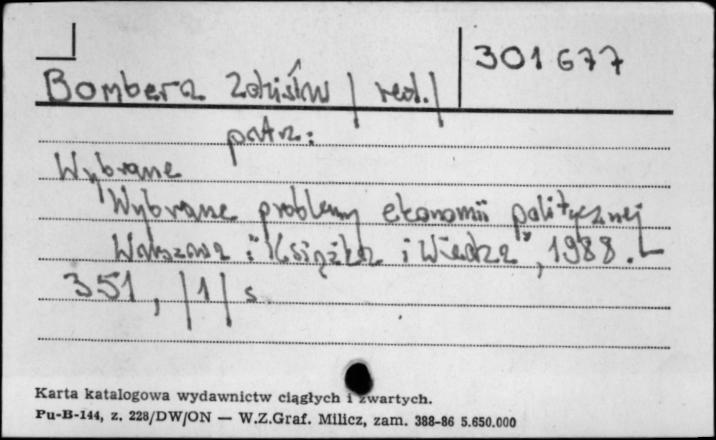 301677
Bombera Zdzisław /red./
patrz:
Wybrane
Wybrane problemy ekonomii politycznej
Warszawa : "Książka i Wiedza", 1988. -
351, /1/ s
Karta katalogowa wydawnictw ciągłych i zwartych.
Pu-B-144, z. 228/DW/ON — W.Z.Graf. Milicz, zam. 388-86 5.650.000